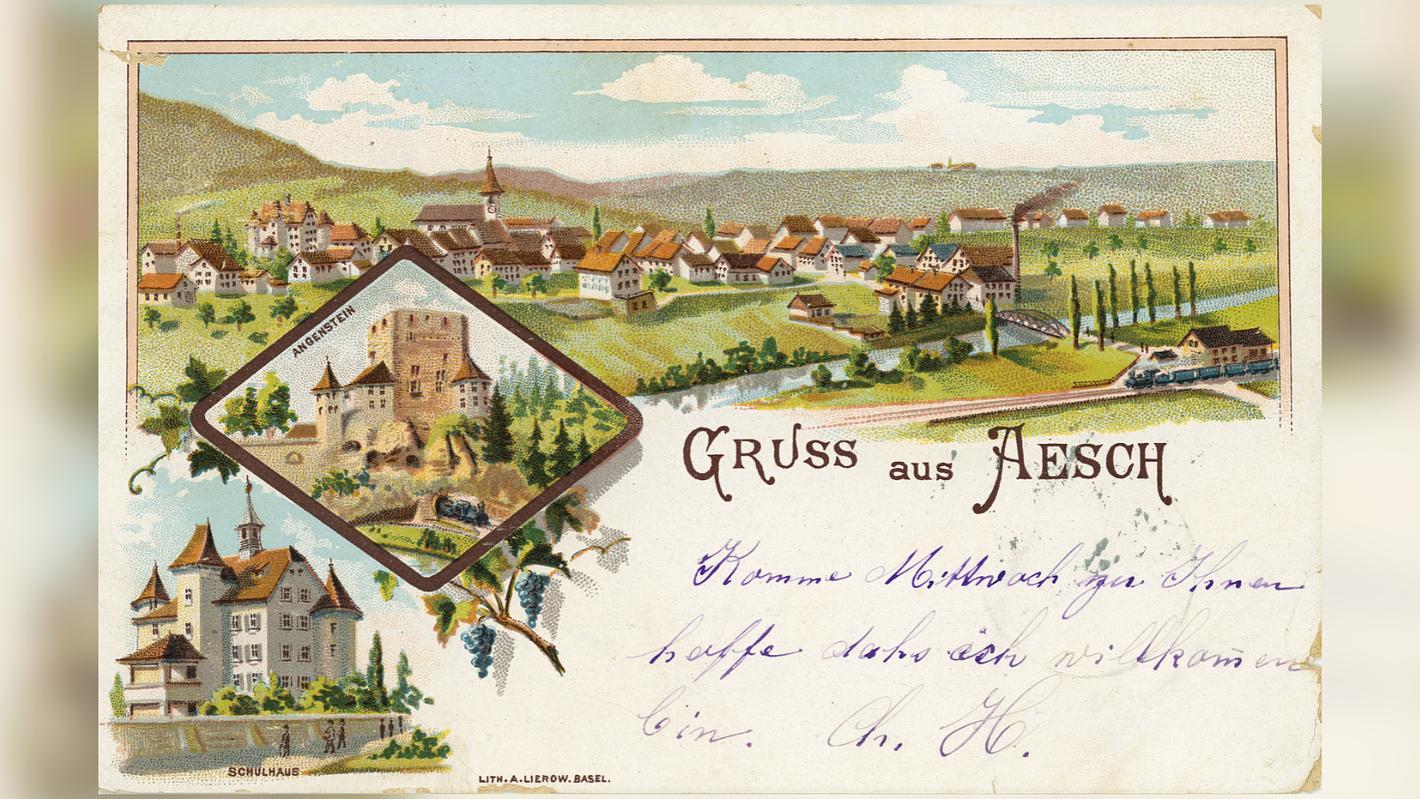 ANGENSTEIN
GRUSS aus AESCH
Komme Mittwoch zu Ihnen
hoffe dahs ich willkom̄en
bin. Ch. H.
SCHULHAUS
LITH. A. LIEROW. BASEL.